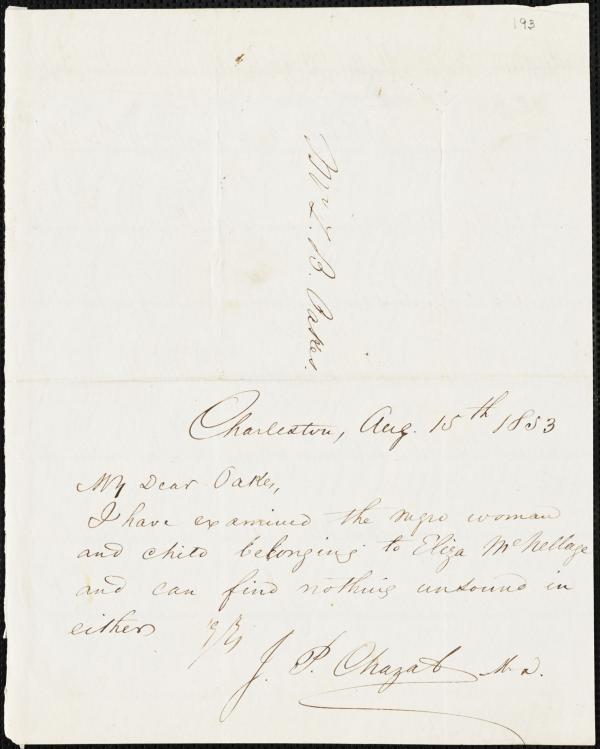 193
Mr Z. B. Oakes.
Charleston, Aug. 15th 1853
My Dear Oakes,
I have examined the negro woman
and child belonging to Eliza McKellage
and can find nothing unsound in
either
J. P. Chazal M.D.